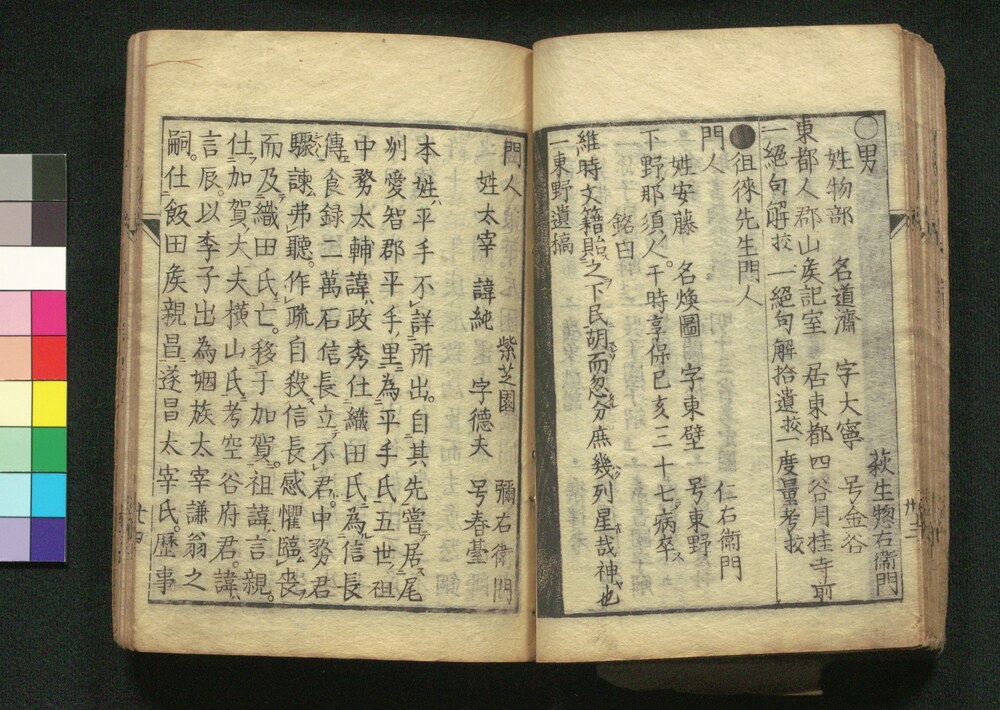 ○男　萩生惣右衛門
姓物部　名道濟　字大寧　号金谷
東都人郡山矦記室　居東都四谷月桂寺前
一絶句解挍　一絶句解拾遺挍　一度量考挍
●徂徠先生門人
門人　仁右衛門
姓安藤　名煥圖　字東壁　号東野
下野那須人。于時享保巳亥三十七病卒ス
銘曰
維時文籍貽則之下民胡而忽分庶幾列星哉神也
一東野遺稿
門人　紫芝園　彌右衛門
姓太宰　諱純　字德夫　号春䑓
本姓ハ平手不詳所出。自其先嘗居尾
州愛智郡平手里為平手氏五世ノ祖
中務太輔諱政秀仕織田氏為信長
傳食録二萬石信長立不君。中務君
驟諫弗聽。作疏自殺信長感懼臨喪
而及織田氏亡。移于加賀。祖諱言親。
仕加賀大夫横山氏。考空谷府君。諱
言辰。以季子出為姻族太宰謙翁之
嗣。仕飯田矦親昌。遂冒太宰氏。歷事
卅二
廿四